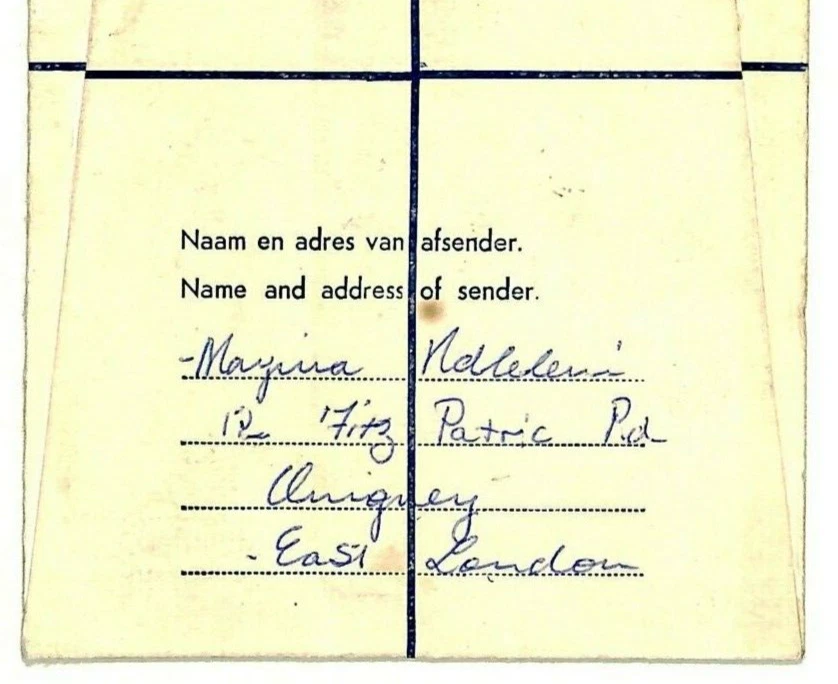 Naam en adres van afsender.
Name and address of sender.
Ndleleni
Fitz Patric Rd
Quigney
East London